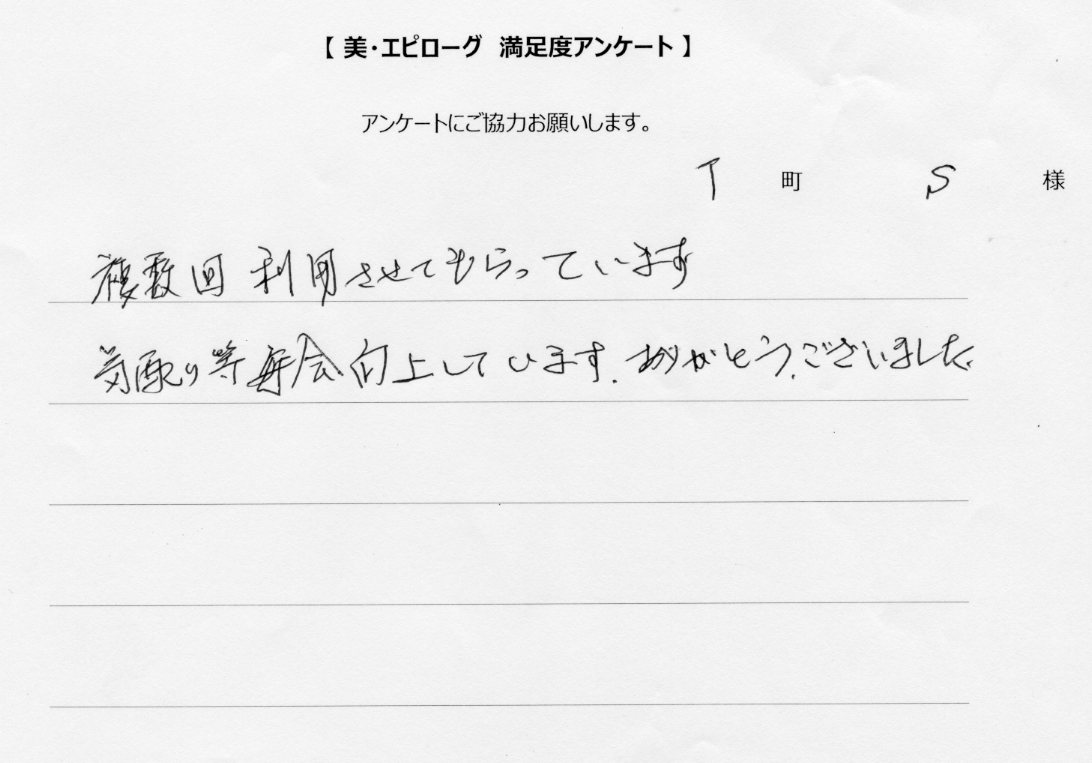 【 美・エピローグ 満足度アンケート 】
アンケートにご協力お願いします。
T 町 S 様
複数回 利用させてもらっています
気配り等毎会向上しています. ありがとうございました